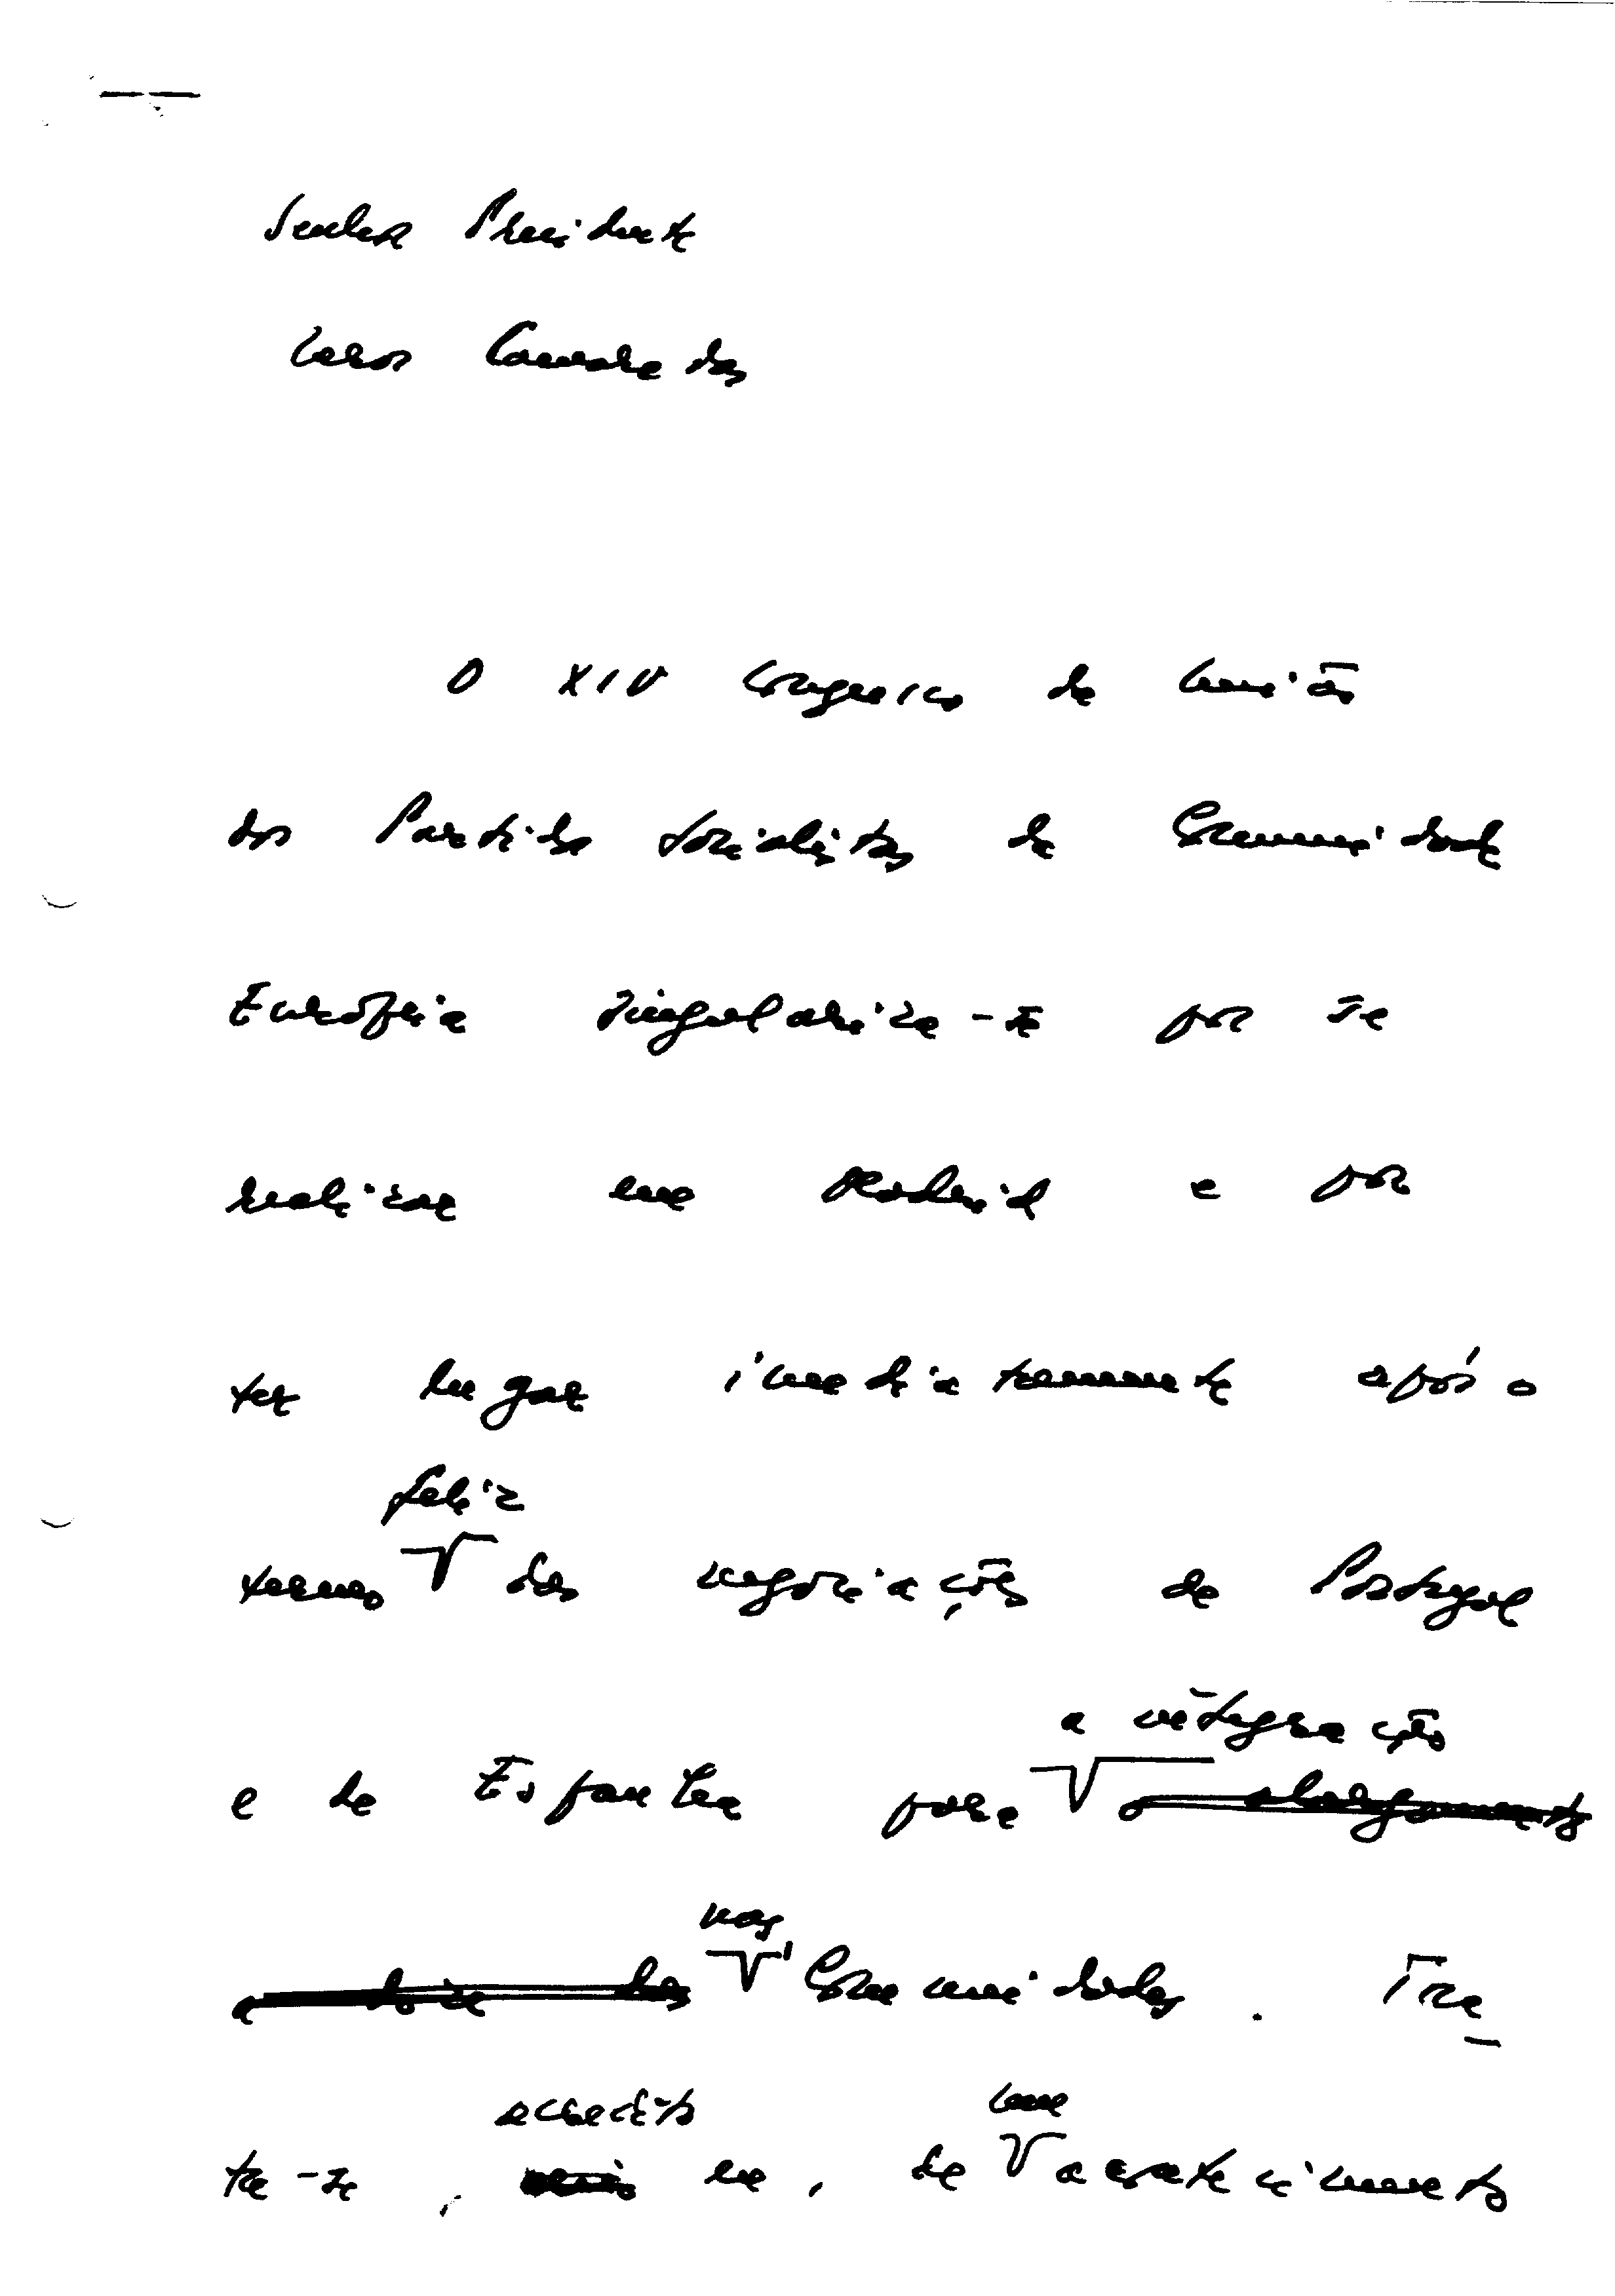 Senhor Presidente
Caros Camaradas
O XIV Congresso da União
dos Partidos Socialistas da Comunidade
Europeia singulariza-se por se
realizar em Madrid e por
ter lugar imediatamente após o
feliz
termo das negociações de Portugal
a integração
e de Espanha para o alargamento
nas
a doze das Comunidades. Tra_
acredito um
ta-se, eu, de acontecimento